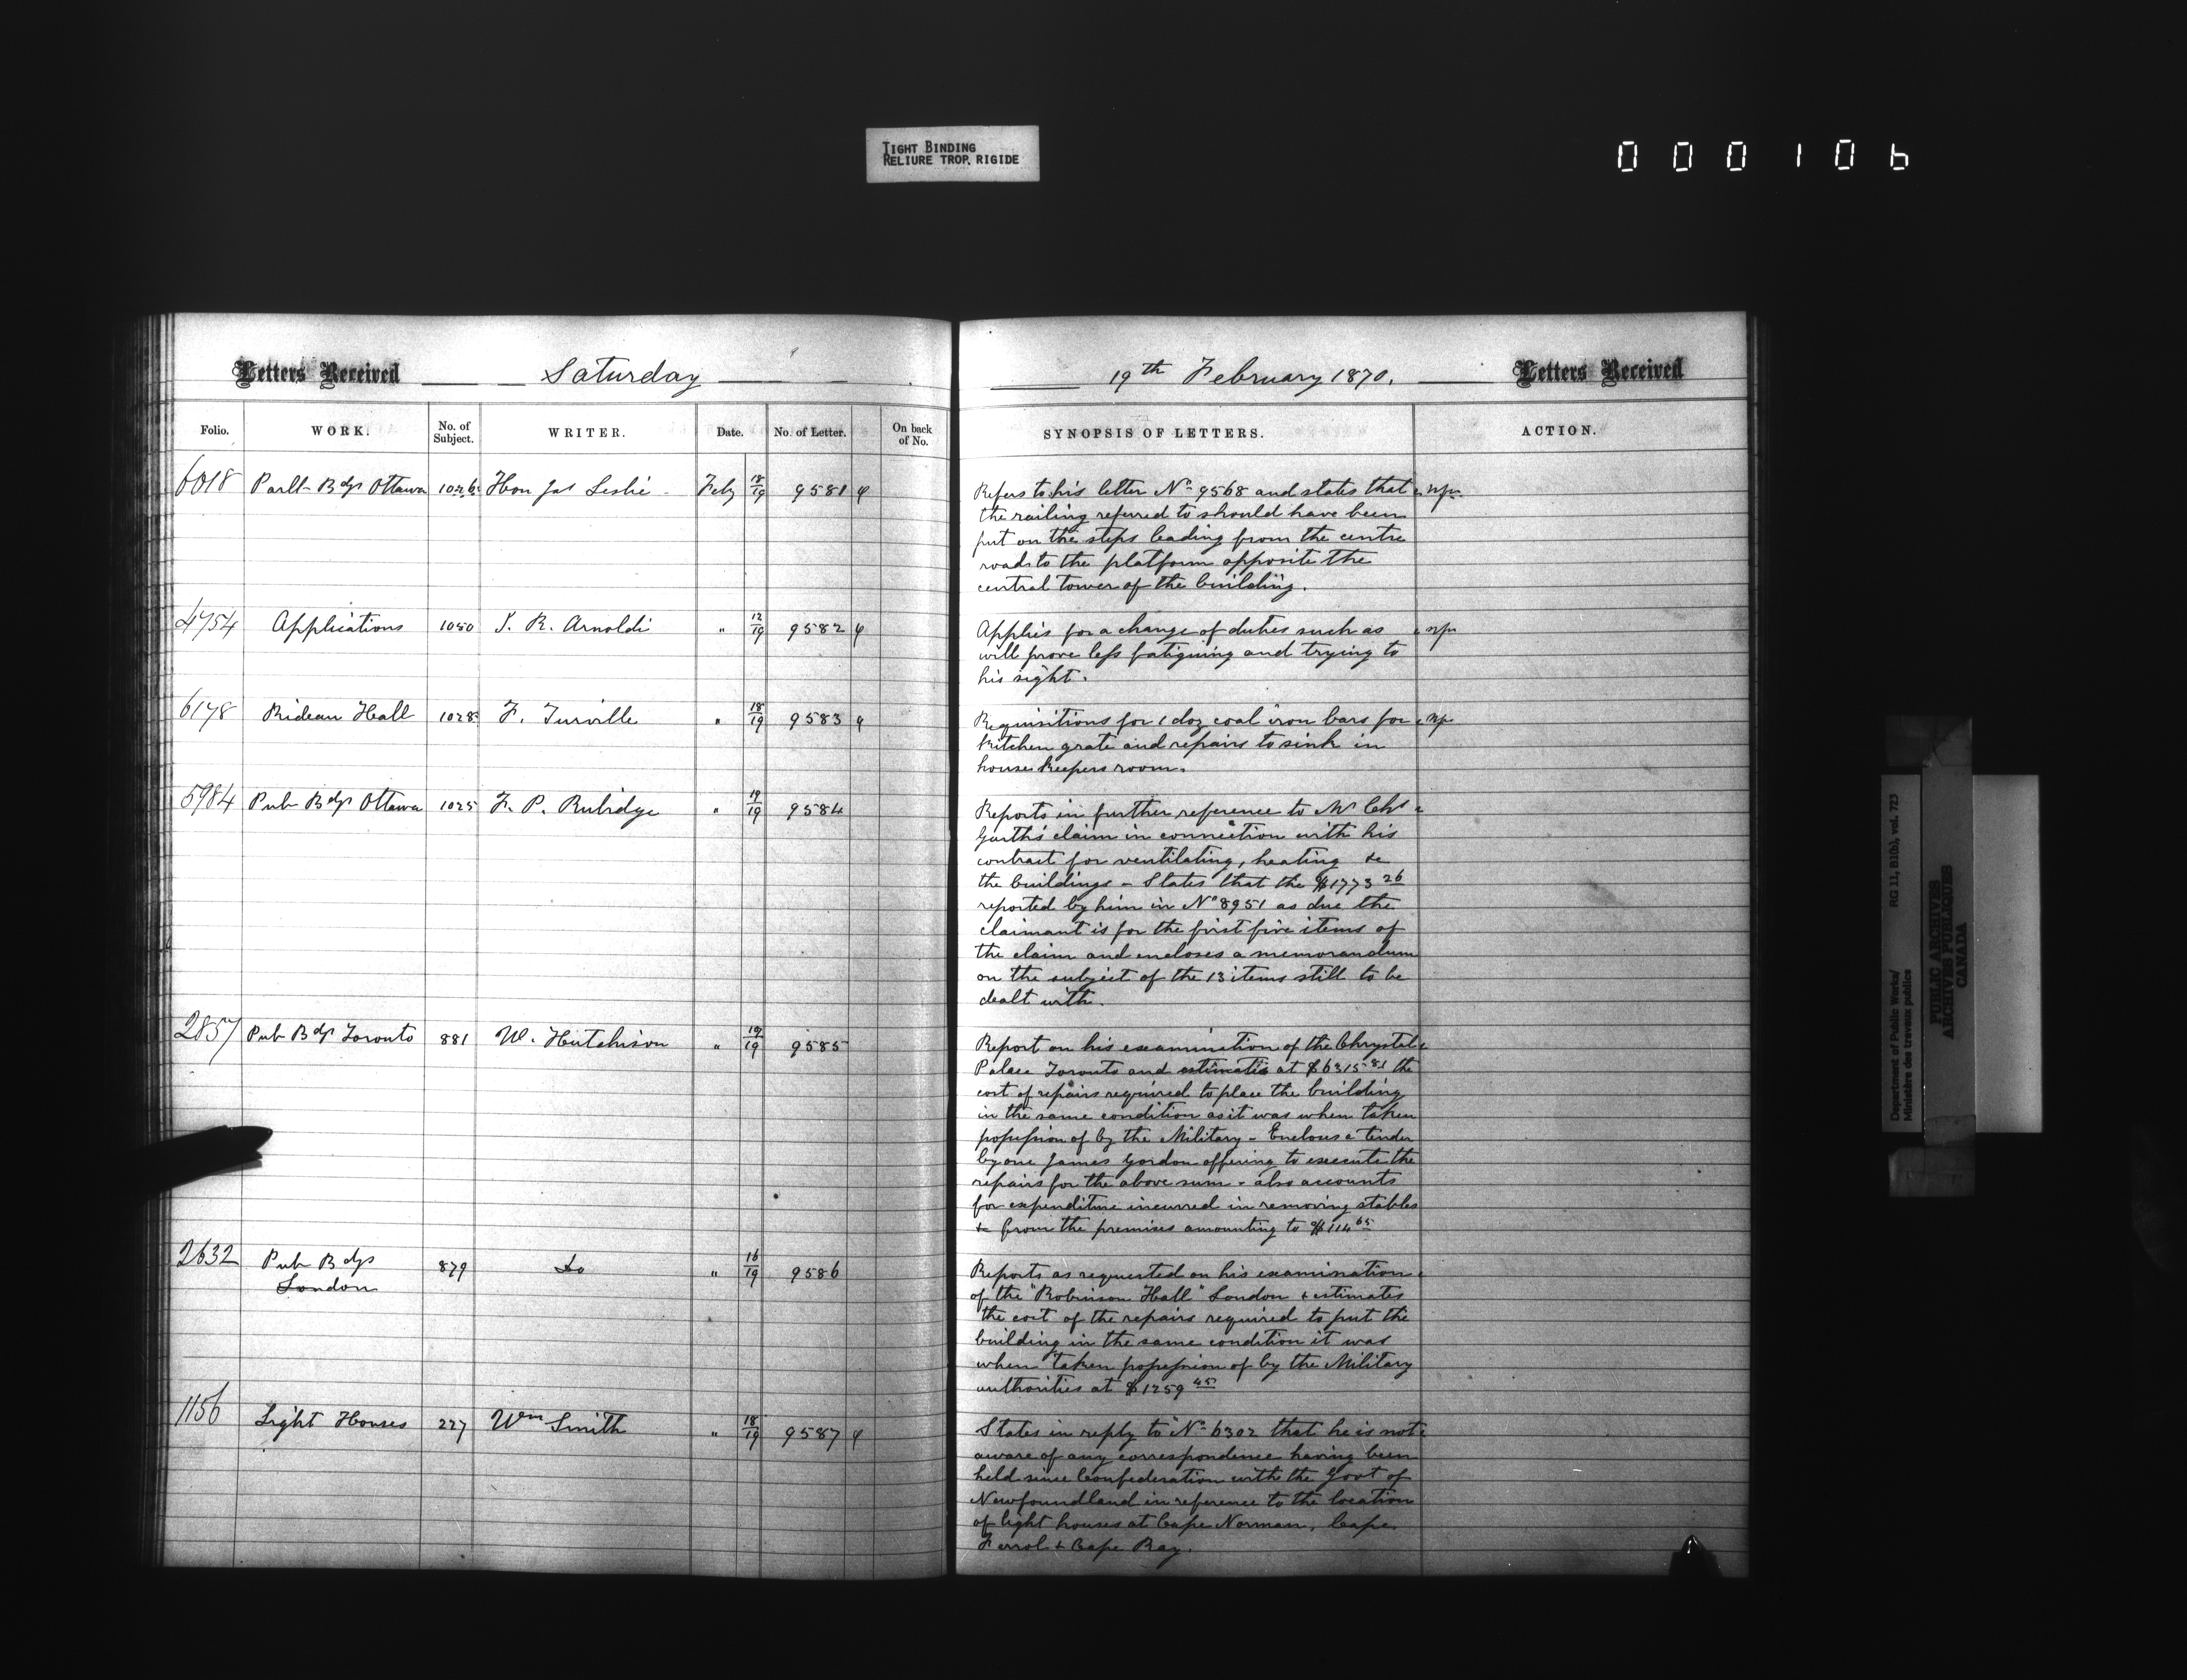 TIGHT BINDING
RELIURE TROP RIGIDE
000106
Letters Received Saturday
19th February 1870. Letters Received
Folio. WORK. No. of Subject. WRITER. Date. No. of Letter. On back of No.
SYNOPSIS OF LETTERS. ACTION.
6018 Parlt Bdgs Ottawa Hon Jas Leslie Feby 18/19 9581
Refers to his letter No 9568 and states that
the railing referred to should have been
put on the steps leading from the centre
road to the platform opposite the
central tower of the building.
4754 Applications 1050 J. R. Arnoldi " 12/19 9582
Applies for a change of duties such as
will prove less fatiguing and trying to
his sight.
6178 Rideau Hall 1028 F. Turville " 18/19 9583
Requisitions for 1 doz coal iron bars for
kitchen grate and repairs to sink in
house keepers room.
5984 Pub Bdgs Ottawa 1025 F. P. Rubidge " 19/19 9584
Reports in further reference to Mr Chs
Garth's claim in connection with his
contract for ventilating, heating &c
the buildings - States that the $1773 26
reported by him in No 8951 as due the
claimant is for the first five items of
the claim and encloses a memorandum
on the subject of the 13 items still to be
dealt with.
2857 Pub Bdgs Toronto 881 W. Hutchison " 19/19 9585
Report on his examination of the Chrystal
Palace Toronto and estimates at $6315 81 the
cost of repairs required to place the building
in the same condition as it was when taken
possession of by the Military - Encloses a tender
by one James Gordon offering to execute the
repairs for the above sum - also accounts
for expenditure incurred in removing stables
&c from the premises amounting to $114 65
2632 Pub Bdgs 879 Do " 16/19 9586
London
Reports as requested on his examination
of the "Robinson Hall" London & estimates
the cost of the repairs required to put the
building in the same condition it was
when taken possession of by the Military
authorities at $1259 45
1156 Light Houses 227 Wm Smith " 18/19 9587
States in reply to No 6302 that he is not
aware of any correspondence having been
held since Confederation with the Govt of
Newfoundland in reference to the location
of light houses at Cape Norman, Cape
Ferrol & Cape Ray.
Department of Public Works/ RG 11, B1(b), vol. 723
Ministère des travaux publics
PUBLIC ARCHIVES
ARCHIVES PUBLIQUES
CANADA